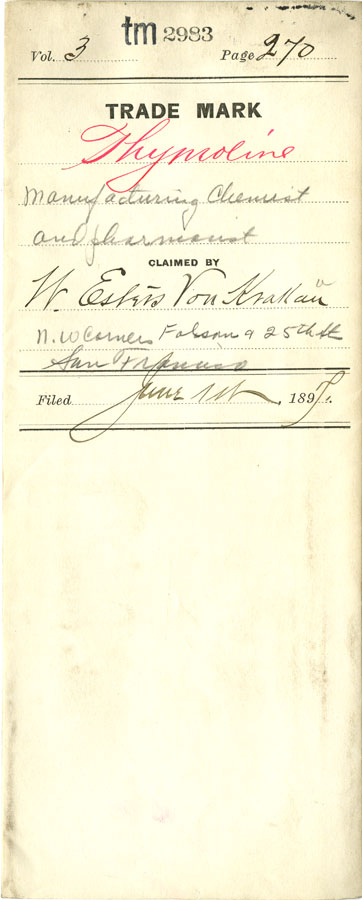 tm 2983
Vol. 3 Page 270
TRADE MARK
Thymoline
Manufacturing Chemist
and pharmacist
CLAIMED BY
W. Esters Von Krakau
N. W Corner Folsom & 25th St
San Francisco
Filed June 1st, 1897.